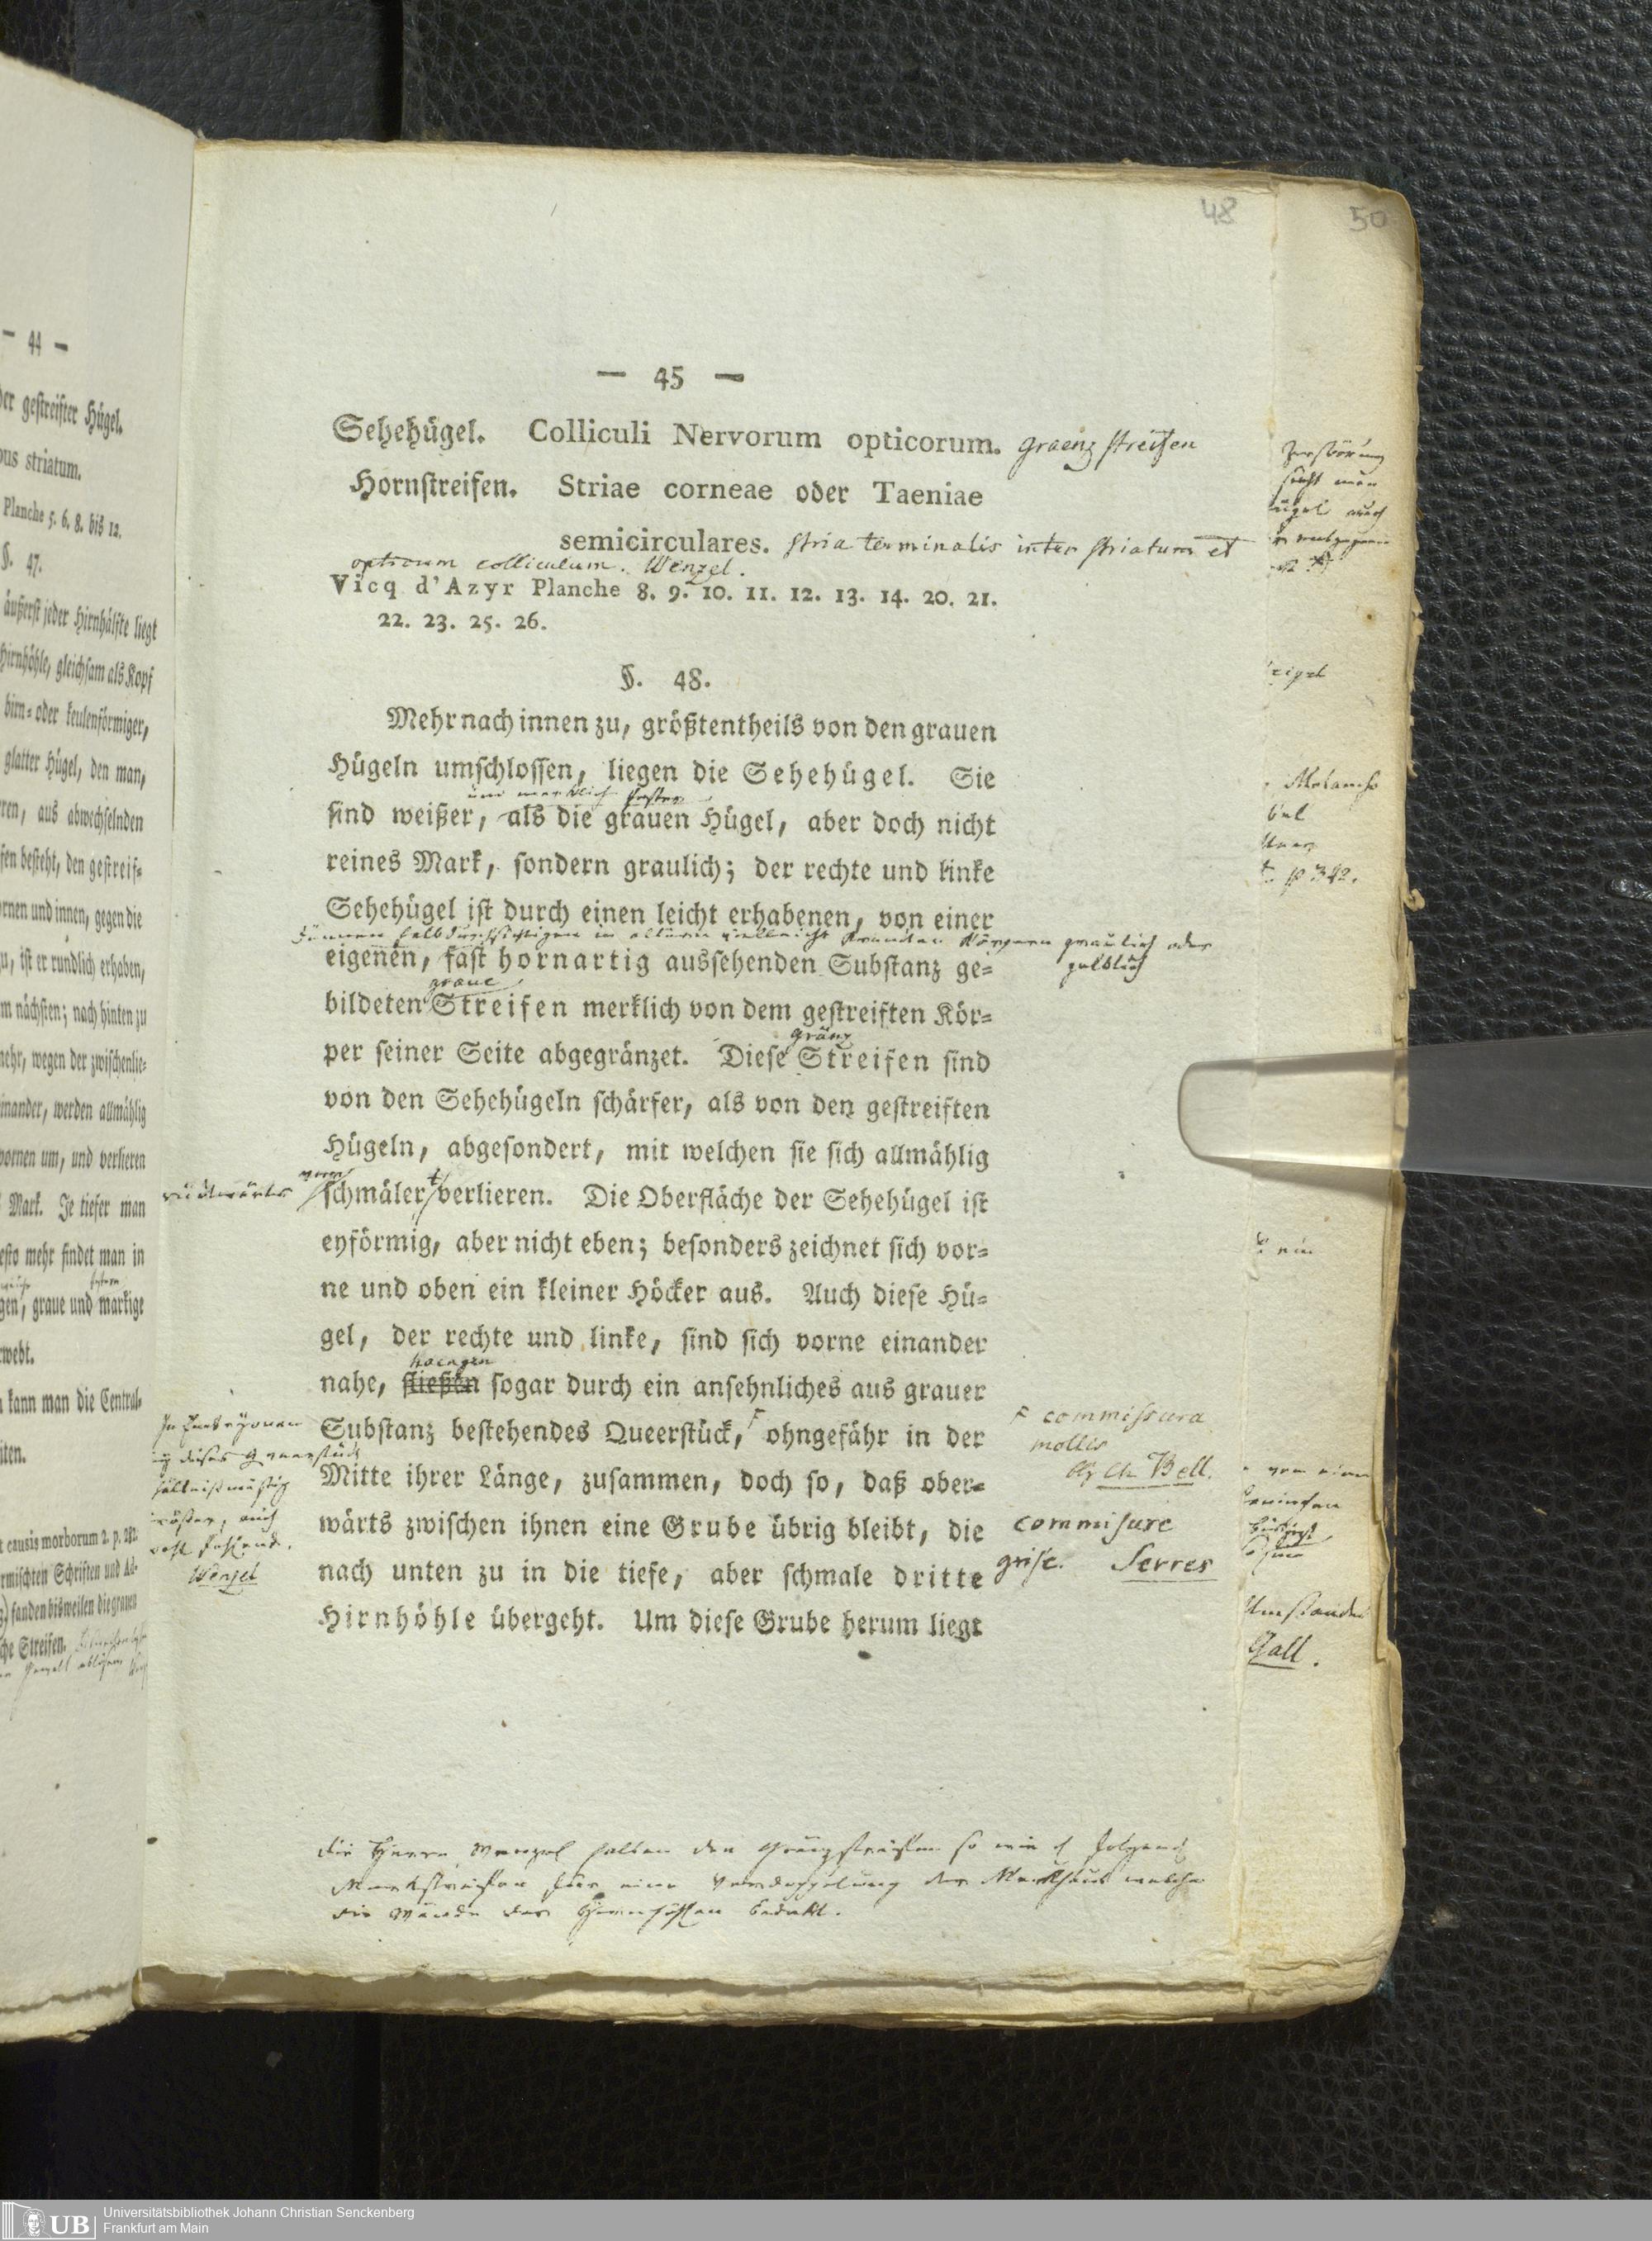 48
50
— 44 —
der gestreifter Hügel.
pus striatum.
Planche 5. 6. 8. bis 12.
§. 47.
äußerst jeder Hirnhälfte liegt
Hirnhöhle, gleichsam als Kopf
birn- oder keulenförmiger,
glatter Hügel, den man,
ren, aus abwechselnden
fen besteht, den gestreif-
ornen und innen, gegen die
zu, ist er rundlich erhaben,
m nächsten; nach hinten zu
mehr, wegen der zwischenlie-
inander, werden allmählig
vornen um, und verlieren
Mark. Je tiefer man
esto mehr findet man in
gen, graue und markige
rwebt.
kann man die Central-
iten.
t causis morborum 2. p. 282.
rmischten Schriften und Ad-
) fanden bisweilen die grauen
che Streifen.
— 45 —
Sehehügel. Colliculi Nervorum opticorum. graenz streifen
Hornstreifen. Striae corneae oder Taeniae
semicirculares. stria terminalis inter striatum et
opticum colliculum. Wenzel.
Vicq d'Azyr Planche 8. 9. 10. 11. 12. 13. 14. 20. 21.
22. 23. 25. 26.
§. 48.
Mehr nach innen zu, größtentheils von den grauen
Hügeln umschlossen, liegen die Sehehügel. Sie
und merklich fester
sind weißer, als die grauen Hügel, aber doch nicht
reines Mark, sondern graulich; der rechte und linke
Sehehügel ist durch einen leicht erhabenen, von einer
dünnen halbdurchsichtigen in ältern vielleicht kranken Körpern graulich oder
gelblich
eigenen, fast hornartig aussehenden Substanz ge-
graue
bildeten Streifen merklich von dem gestreiften Kör-
gränz
per seiner Seite abgegränzet. Diese Streifen sind
von den Sehehügeln schärfer, als von den gestreiften
Hügeln, abgesondert, mit welchen sie sich allmählig
rückwärts
schmäler verlieren. Die Oberfläche der Sehehügel ist
eyförmig, aber nicht eben; besonders zeichnet sich vor-
ne und oben ein kleiner Höcker aus. Auch diese Hü-
gel, der rechte und linke, sind sich vorne einander
haengen
nahe, fließen sogar durch ein ansehnliches aus grauer
Substanz bestehendes Queerstück, ohngefähr in der
Mitte ihrer Länge, zusammen, doch so, daß ober-
wärts zwischen ihnen eine Grube übrig bleibt, die
nach unten zu in die tiefe, aber schmale dritte
Hirnhöhle übergeht. Um diese Grube herum liegt
In Embryonen
dieses Queerstück
Wenzel
F commissura
mollis
Ch Bell.
commisure
grise. Serres
die Herrn Wenzel halten den Gränzstreifen so wie d folgend
Markstreifen für eine Verdoppelung der Markhaut welche
die Wände der Hirnhöhlen bedekt.
Zerstörung
sieht man
ügel auch
p 342.
ein
Umstande
Gall.
UB
Universitätsbibliothek Johann Christian Senckenberg
Frankfurt am Main